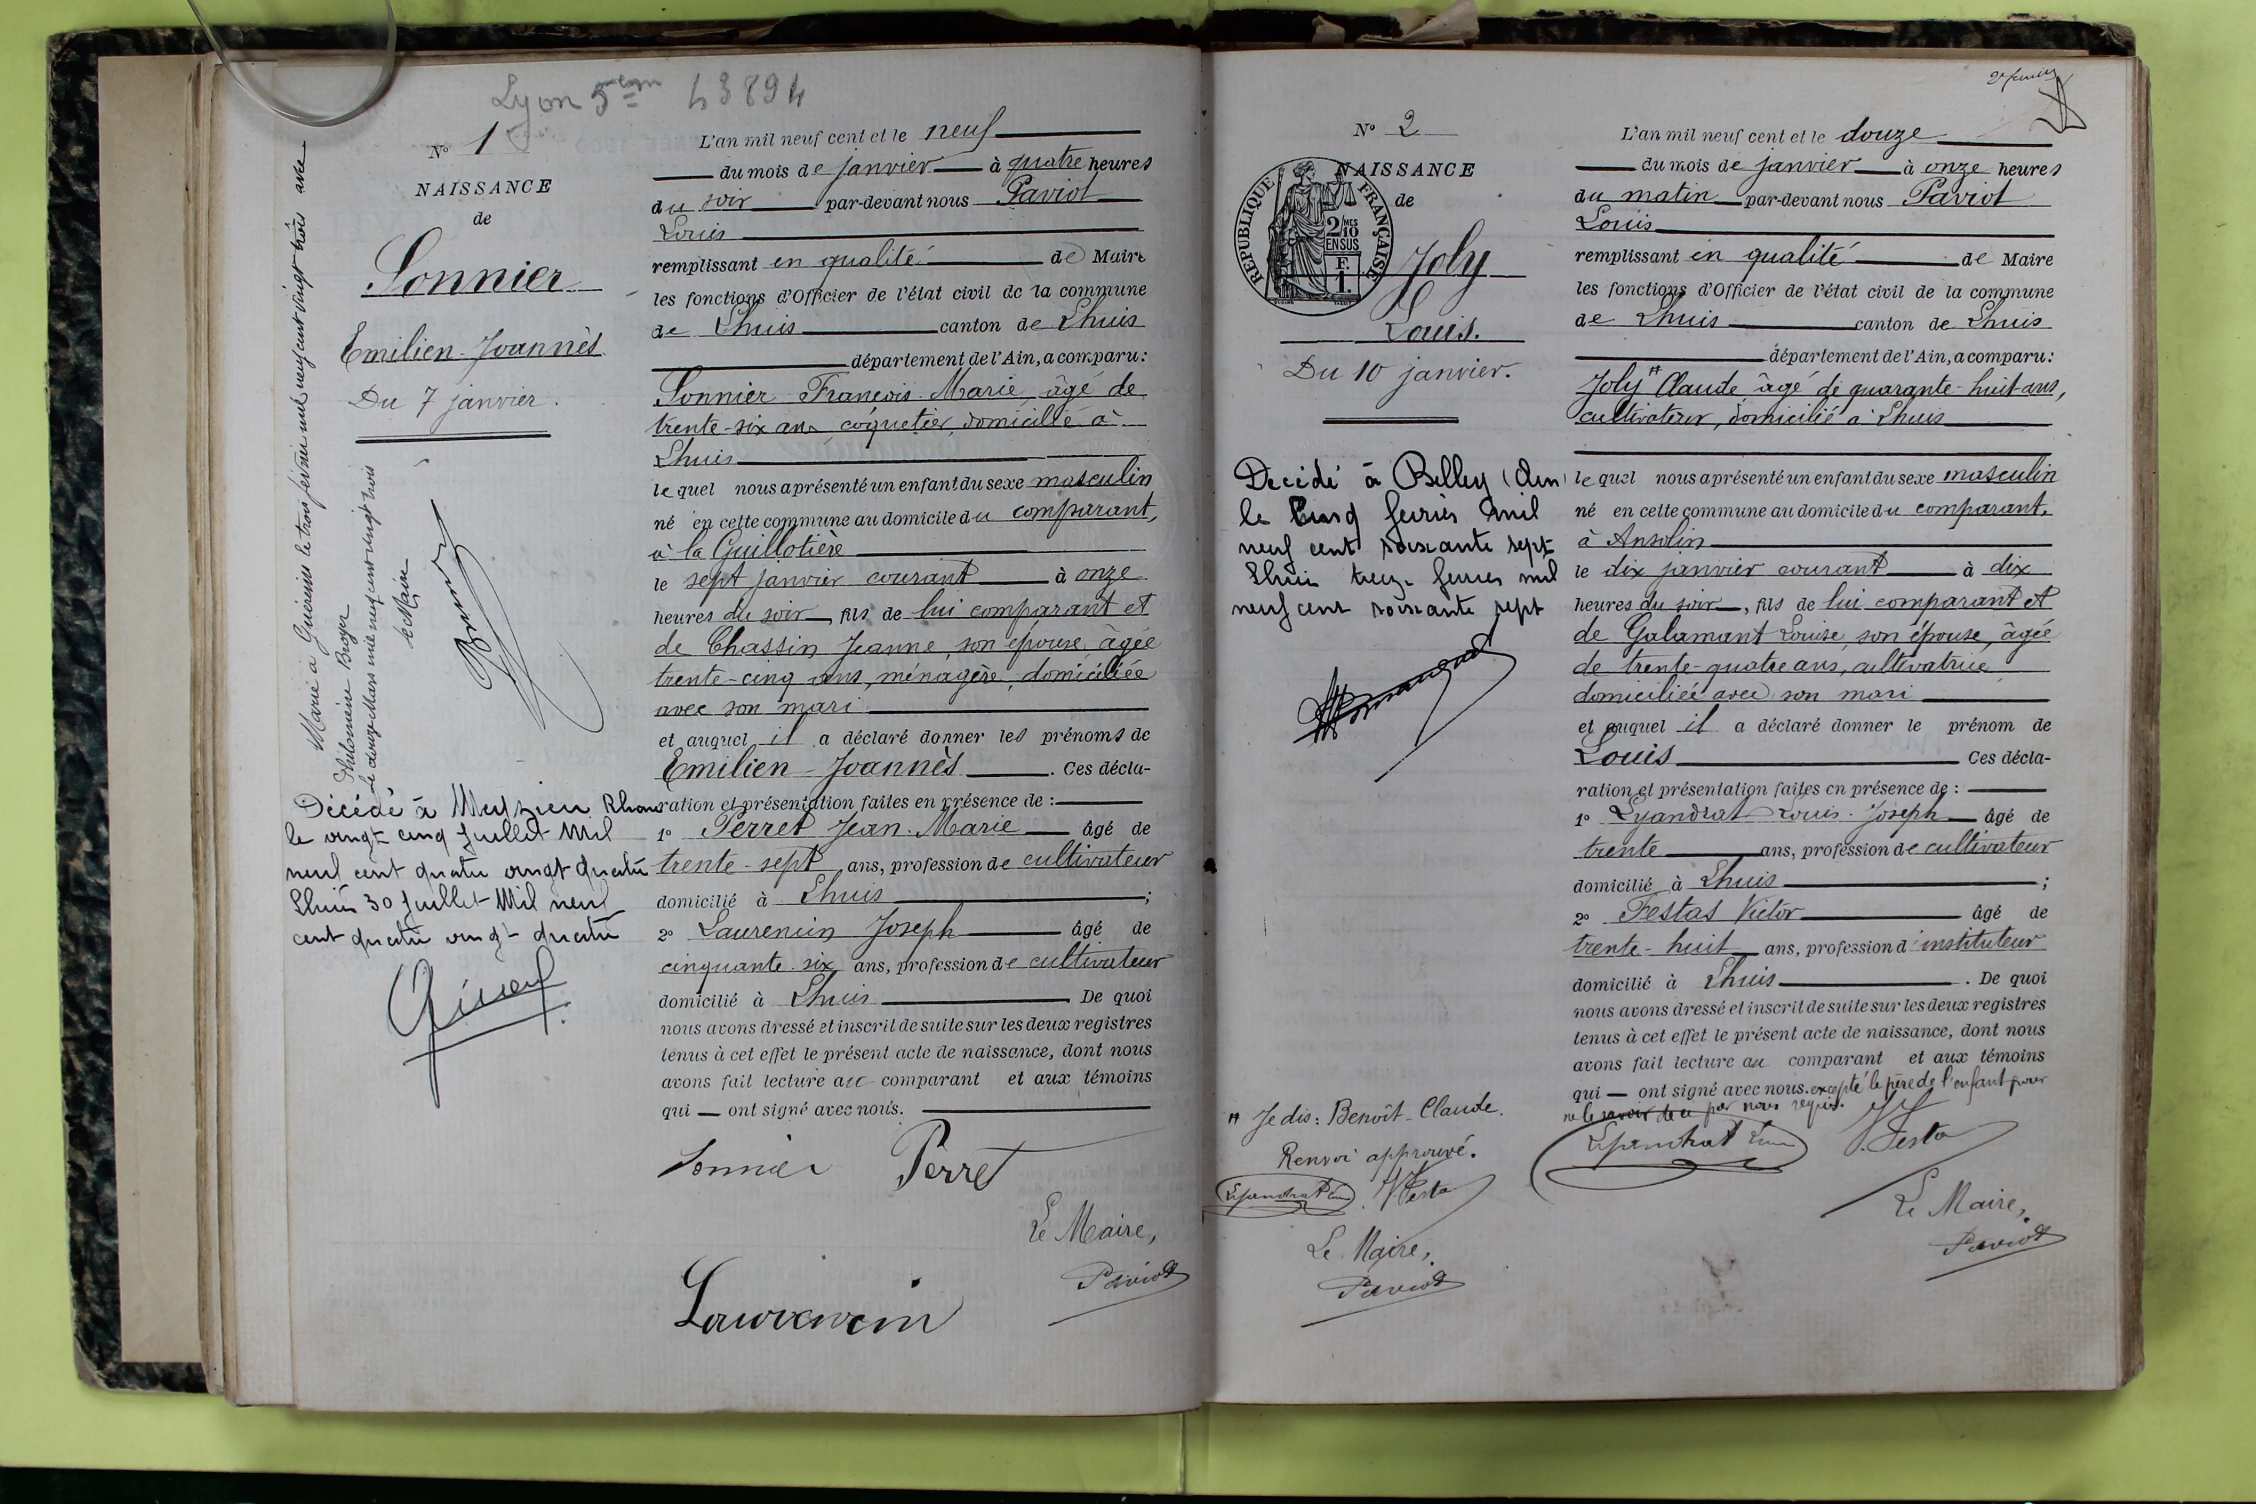 Lyon 5ème 43894
N° 1
NAISSANCE
de
Sonnier
Emilien-Joannès
Du 7 janvier.
Marié à Guiseries le trois février mil neuf cent vingt-trois avec
Philomène Broyer
Le douze Mars mil neuf cent vingt trois
Le Maire
Décédé à Meyzieu Rhone
le vingt cinq Juillet Mil
neuf cent quatre vingt quatre
Lhuis 30 Juillet Mil neuf
cent quatre vingt quatre
L'an mil neuf cent et le neuf
du mois de janvier à quatre heures
du soir par-devant nous Paviot
Louis
remplissant en qualité de Maire
les fonctions d'Officier de l'état civil de la commune
de Lhuis canton de Lhuis
département de l'Ain, a comparu:
Sonnier François-Marie, âgé de
trente-six ans, coquetier, domicilié à
Lhuis
lequel nous a présenté un enfant du sexe masculin
né en cette commune au domicile du comparant,
à la Guillotière
le sept janvier courant à onze
heures du soir, fils de lui comparant et
de Chassin Jeanne, son épouse, âgée
trente-cinq ans, ménagère, domiciliée
avec son mari
et auquel il a déclaré donner les prénoms de
Emilien-Joannès. Ces décla-
ration et présentation faites en présence de :
1° Perret Jean-Marie âgé de
trente-sept ans, profession de cultivateur
domicilié à Lhuis ;
2° Laurencin Joseph âgé de
cinquante-six ans, profession de cultivateur
domicilié à Lhuis De quoi
nous avons dressé et inscrit de suite sur les deux registres
tenus à cet effet le présent acte de naissance, dont nous
avons fait lecture au comparant et aux témoins
qui — ont signé avec nous.
Sonnier Perret
Le Maire,
Paviot
Laurencin
2e feuille
N° 2
NAISSANCE
de
RÉPUBLIQUE FRANÇAISE
2/10 MES
EN SUS
F.
1.
Joly
Louis.
Du 10 janvier.
Décédé à Belley (Ain)
le Cinq février mil
neuf cent soixante sept
Lhuis treize février mil
neuf cent soixante sept
# Je dis: Benoît-Claude.
Renvoi approuvé.
V. Festas
Le Maire,
Paviot
L'an mil neuf cent et le douze
du mois de janvier à onze heures
du matin par-devant nous Paviot
Louis
remplissant en qualité de Maire
les fonctions d'Officier de l'état civil de la commune
de Lhuis canton de Lhuis
département de l'Ain, a comparu:
Joly # Claude, âgé de quarante-huit ans,
cultivateur, domicilié à Lhuis
lequel nous a présenté un enfant du sexe masculin
né en cette commune au domicile du comparant,
à Ansolin
le dix janvier courant à dix
heures du soir, fils de lui comparant et
de Galamant Louise, son épouse, âgée
de trente-quatre ans, cultivatrice
domiciliée avec son mari
et auquel il a déclaré donner le prénom de
Louis Ces décla-
ration et présentation faites en présence de :
1° Lyandrat Louis-Joseph âgé de
trente ans, profession de cultivateur
domicilié à Lhuis ;
2° Festas Victor âgé de
trente-huit ans, profession d'instituteur
domicilié à Lhuis. De quoi
nous avons dressé et inscrit de suite sur les deux registres
tenus à cet effet le présent acte de naissance, dont nous
avons fait lecture au comparant et aux témoins
qui — ont signé avec nous. excepté le père de l'enfant pour
ne le savoir de ce par nous requis.
Lyandrat V. Festas
Le Maire,
Paviot